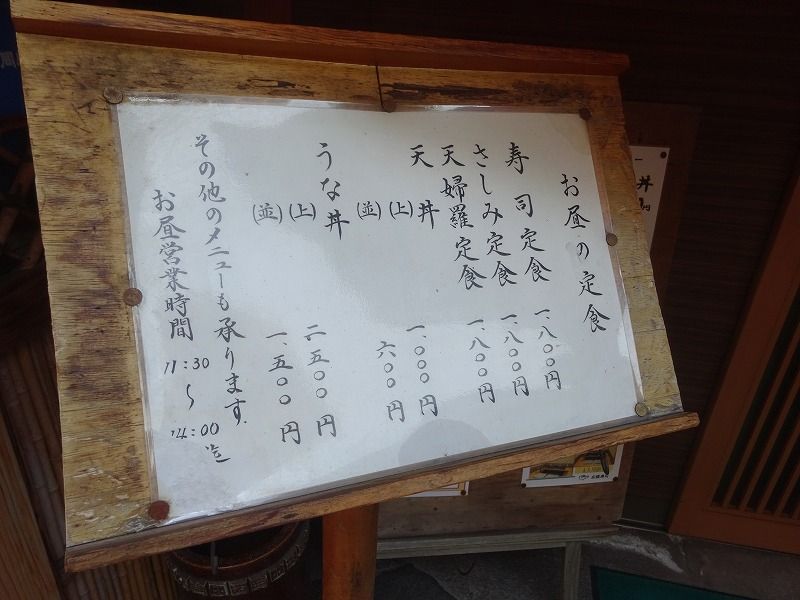 お昼の定食
寿司定食 一、八〇〇円
さしみ定食 一、八〇〇円
天婦羅定食 一、八〇〇円
天丼
(上) 一、〇〇〇円
(並) 六〇〇円
うな丼
(上) 二、五〇〇円
(並) 一、五〇〇円
その他のメニューも承ります.
お昼営業時間 11:30〜14:00迄
丼